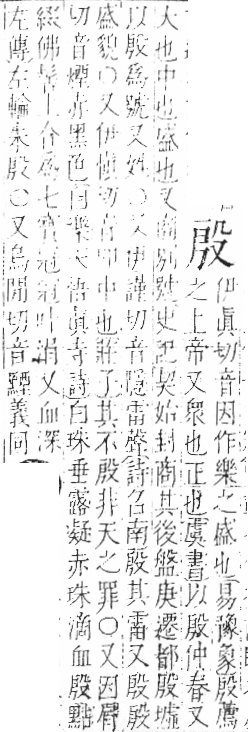 殷
伊眞切音因作樂之盛也易豫象殷薦
之上帝又衆也正也虞書以殷仲春又
大也中也盛也又商別號史記契始封商其後盤庚遷都殷墟
以殷爲號又姓○又伊謹切音隱雷聲詩召南殷其雷又殷殷
盛貌○又伊愼切音印中也莊子其不殷非天之罪○又因肩
切音煙赤黑色白樂天悟眞寺詩白珠垂露凝赤珠滴血殷點
綴佛髻上合爲七寶冠冠叶涓又血深
左傳左輪朱殷○又烏閒切音黫義同